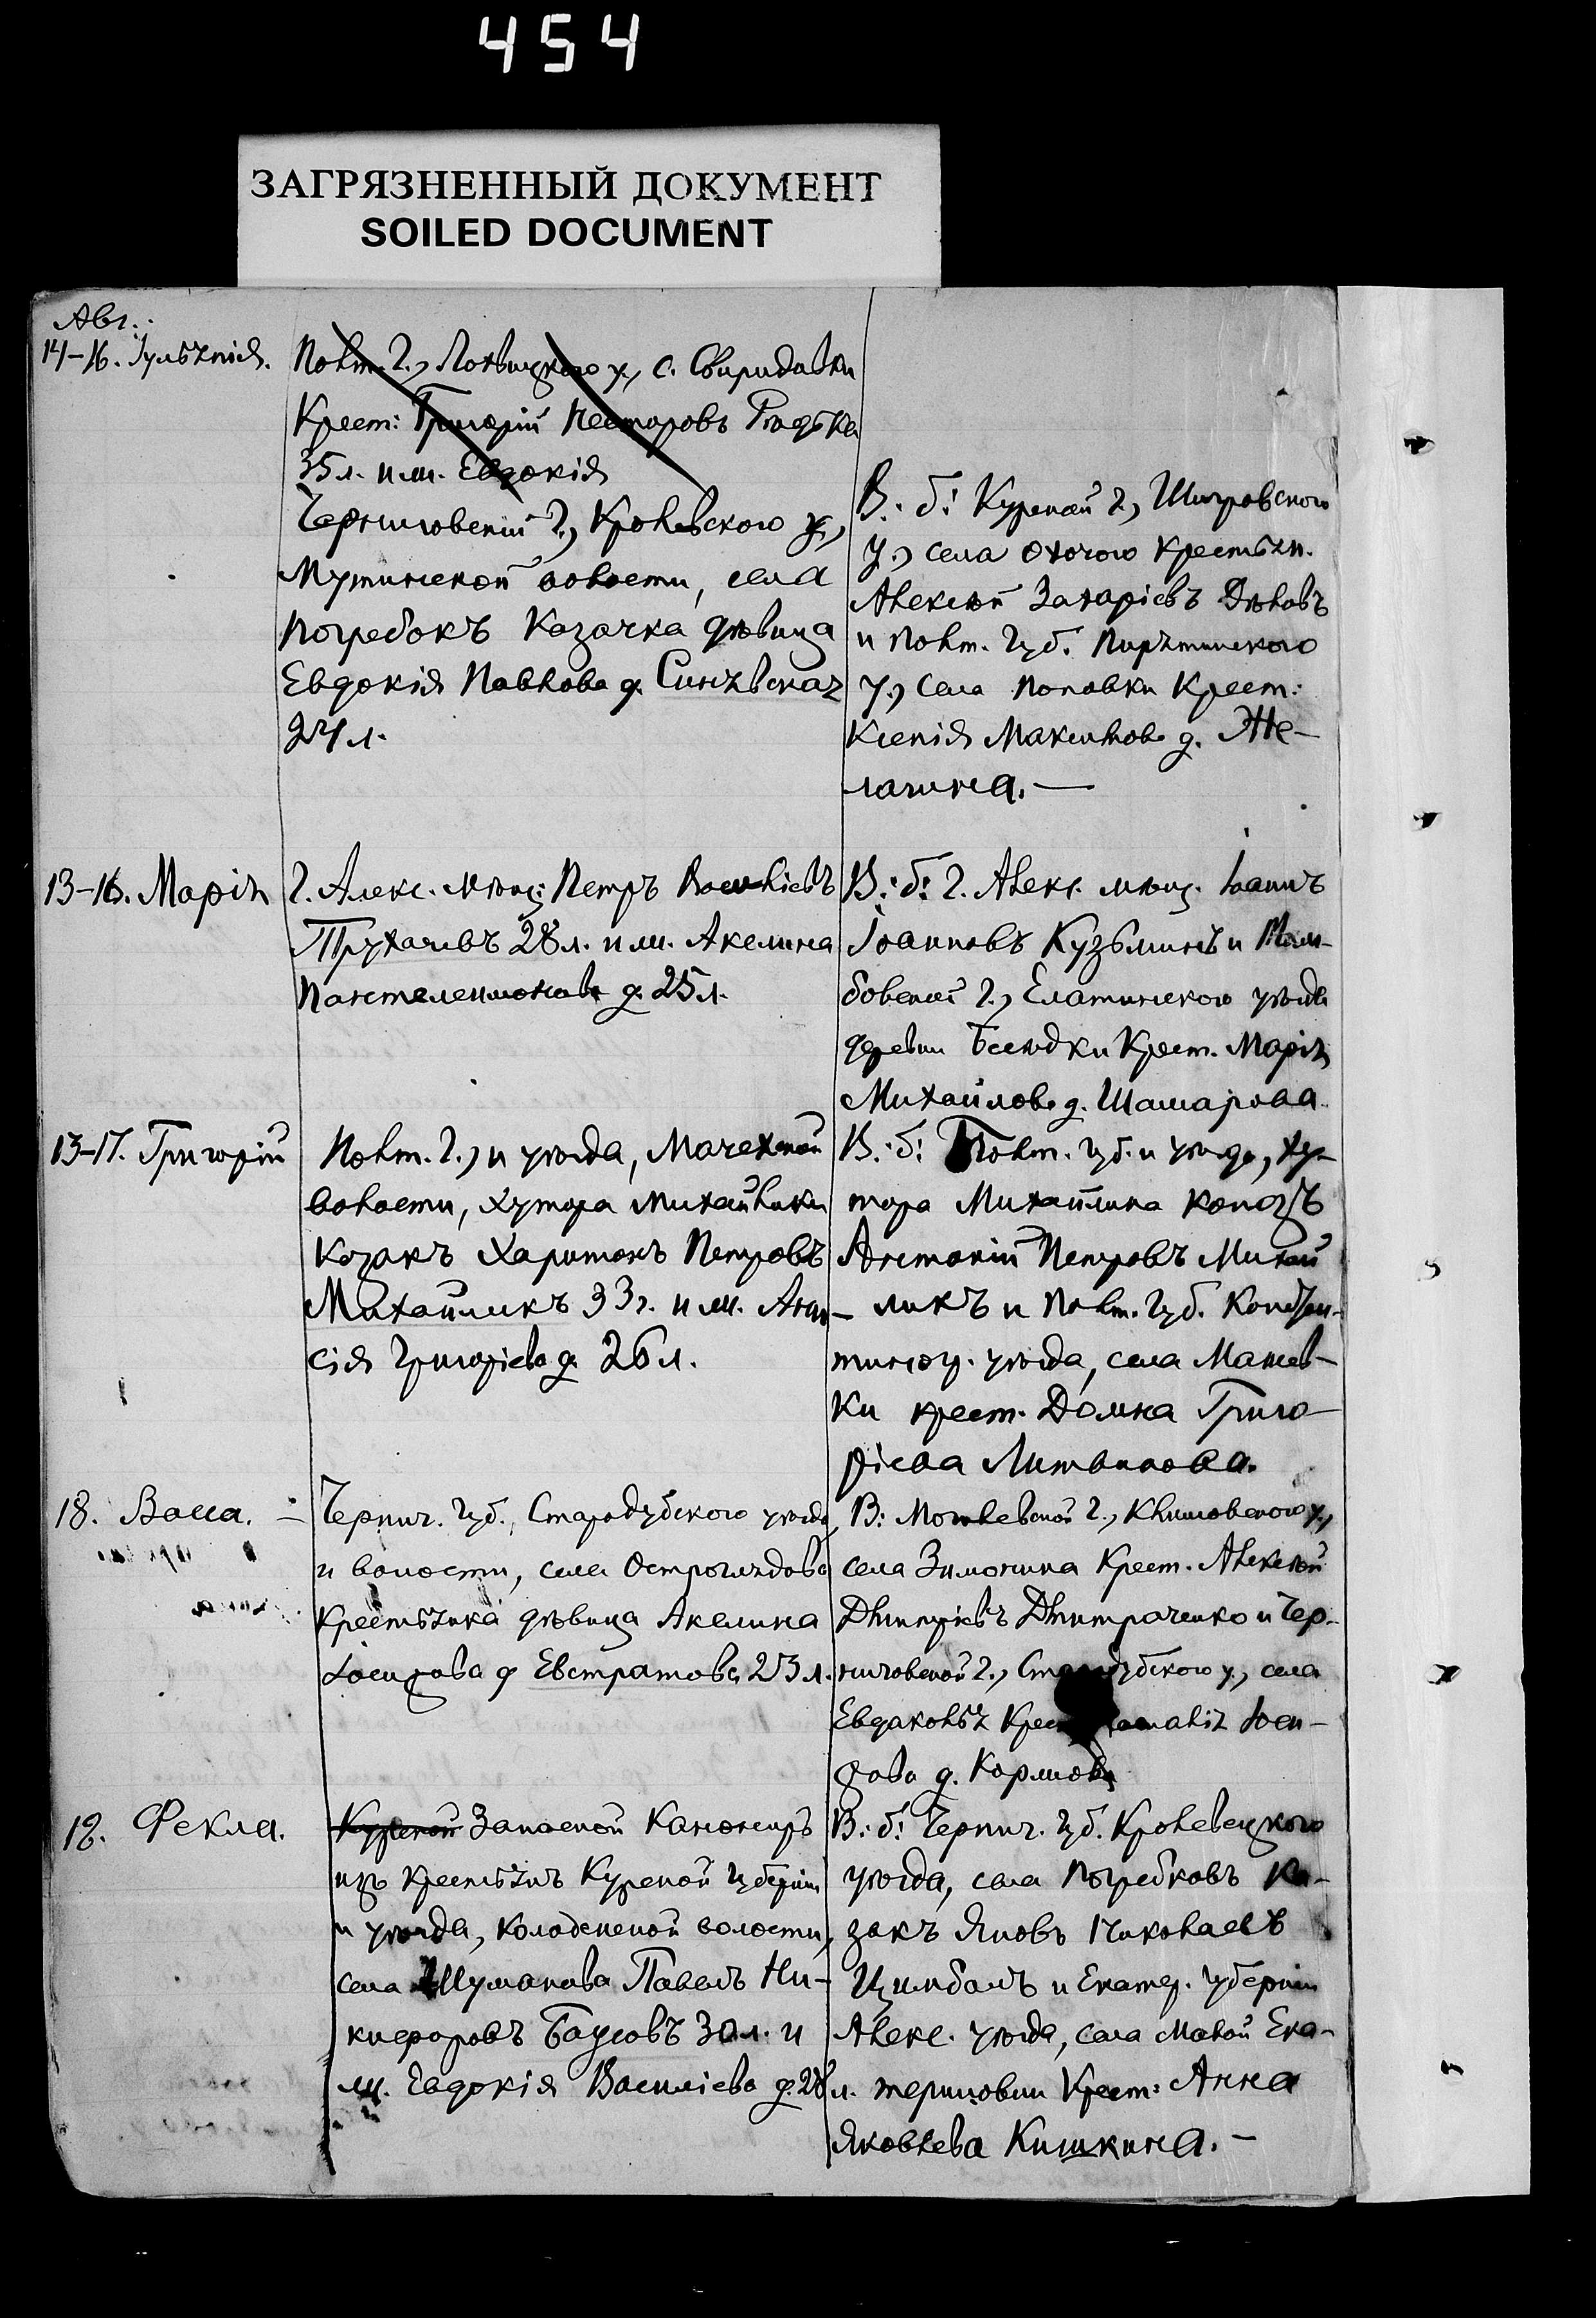 454
ЗАГРЯЗНЕННЫЙ ДОКУМЕНТ
SOILED DOCUMENT
Авг.:
14-16. Іульянія.
Полт. г., Лохвицкаго у., с. Свиридовки
Крест: Григорій Несторовъ Рядька
35 л. и ж. Евдокія
Черниговской г., Кролевского у.,
Мутинской волости, села
Погребокъ Козачка дѣвица
Евдокія Павлова д. Синявская
24 л.
В.: б: Курской г., Щигровского
у., села Охочого крестьян.
Алексѣй Захаріевъ Дѣловъ
и Полт. губ. Пирятинского
у., села Поповки Крест:
Ксенія Максимова д. Же-
лагина. —
13-16. Марія
г. Алекс. мѣщ: Петръ Василіевъ
Трухачевъ 28 л. и ж. Акелина
Пантелеимонова д. 25 л.
В: б: г. Алекс. мѣщ. Іоаннъ
Іоанновъ Кузьминъ и Там-
бовской г., Елатинского уѣзда
деревни Бесѣдки Крест. Марія
Михайлова д. Шашарова.
13-17. Григорій
Полт. г., и уѣзда, Мачехской
волости, хутора Михайлики
Козакъ Харитонъ Петровъ
Михайликъ 33 г. и ж. Ана-
сія Григоріева д. 26 л.
В.: б: Полт. губ. и уѣзда, ху-
тора Михайлика козакъ
Антоній Петровъ Михай
— ликъ и Полт. губ. Констан-
тиногр. уѣзда, села Машев-
ки крест. Домна Григо-
ріева Литвинова.
18. Васса. —
Черниг. губ., Стародубского уѣзда
и волости, села Остроглядова
Крестьянка дѣвица Акелина
Іосифова д Евстратова 23 л.
В: Могилевской г., Климовского у.,
села Зимонина Крест. Алексѣй
Дмитріевъ Дмитраченко и Чер-
ниговской г., Стародубского у., села
Евдаколья Крес Іоси-
фова д. Кормова
18. Фекла.
Курской Запасной Канониръ
изъ крестьянъ Курской губерніи
и уѣзда, Колоденской волости,
села Шуманова Павелъ Ни-
кифоровъ Баусовъ 30 л. и
ж. Евдокія Василіева д. 28 л.
В: б: Черниг. губ. Кролевецкого
уѣзда, села Погребковъ Ка-
закъ Яковъ Николаевъ
Цимбалъ и Екатер. губерніи
Алекс. уѣзда, села Малой Ека-
териновки Крест: Анна
Яковлева Кишкина. —